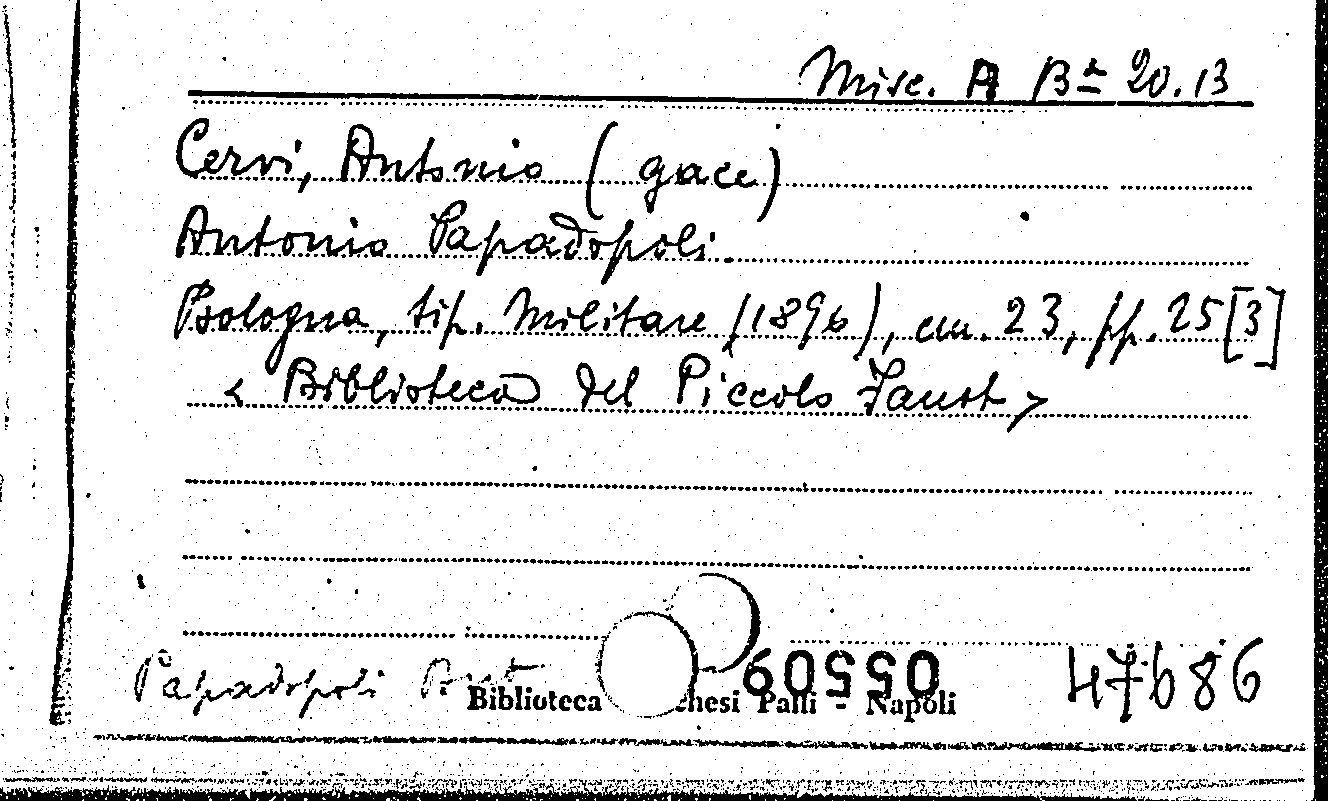 Misc. A Bª 20.13
Cervi, Antonio (gace)
Antonio Papadopoli.
Bologna, tip. Militare (1896), cm. 23, pp. 25 [3]
< Biblioteca del Piccolo Faust >
Papadopoli Ant
60550
47686
Biblioteca chesi Palli - Napoli